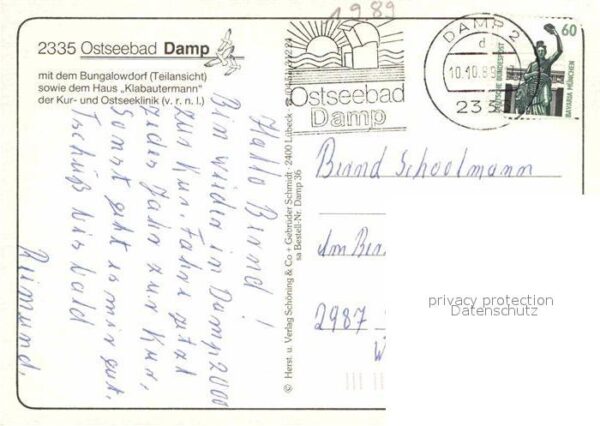 1989
2335 Ostseebad Damp
mit dem Bungalowdorf (Teilansicht)
sowie dem Haus „Klabautermann“
der Kur- und Ostseeklinik (v. r. n. l.)
Hallo Bernd!
Bin wieder in Damp 2000
zur Kur. Fahre jetzt
jedes Jahr zur Kur,
Sonst geht es mir gut.
Tschüß bis bald
Reimund.
© Herst. u. Verlag Schöning & Co + Gebrüder Schmidt · 2400 Lübeck ·
sa Bestell-Nr. Damp 36
Ostseebad
Damp
DAMP 2
d
10.10.8
233
60
DEUTSCHE BUNDESPOST
BAVARIA MÜNCHEN
Bernd Schoolmann
Am
2987
privacy protection
Datenschutz